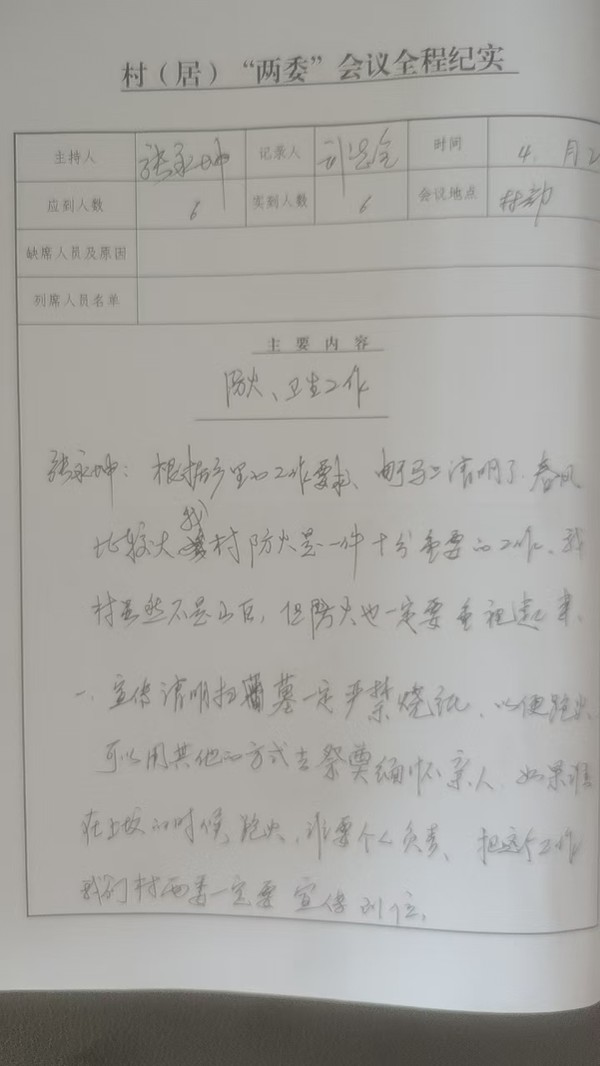 村（居）“两委”会议全程纪实
主持人 张永坤 记录人 时间 4. 月2
应到人数 6 实到人数 6 会议地点 村部
缺席人员及原因
列席人员名单
主要内容
防火、卫生工作
张永坤：根据乡里的工作要求、由于马上清明了.春风
比较大我村防火是一件十分重要的工作、我
村虽然不是山区，但防火也一定要重视起来、
一、宣传清明扫墓一定严禁烧纸、以便跑火
可以用其他的方式去祭奠缅怀亲人.如果谁
在上坟的时候，跑火，谁要个人负责、把这个工作
我们村两委一定要宣传到位。